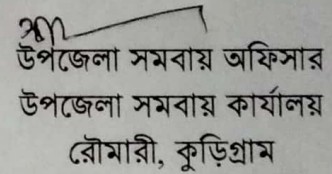 উপজেলা সমবায় অফিসার
উপজেলা সমবায় কার্যালয়
রৌমারী, কুড়িগ্রাম